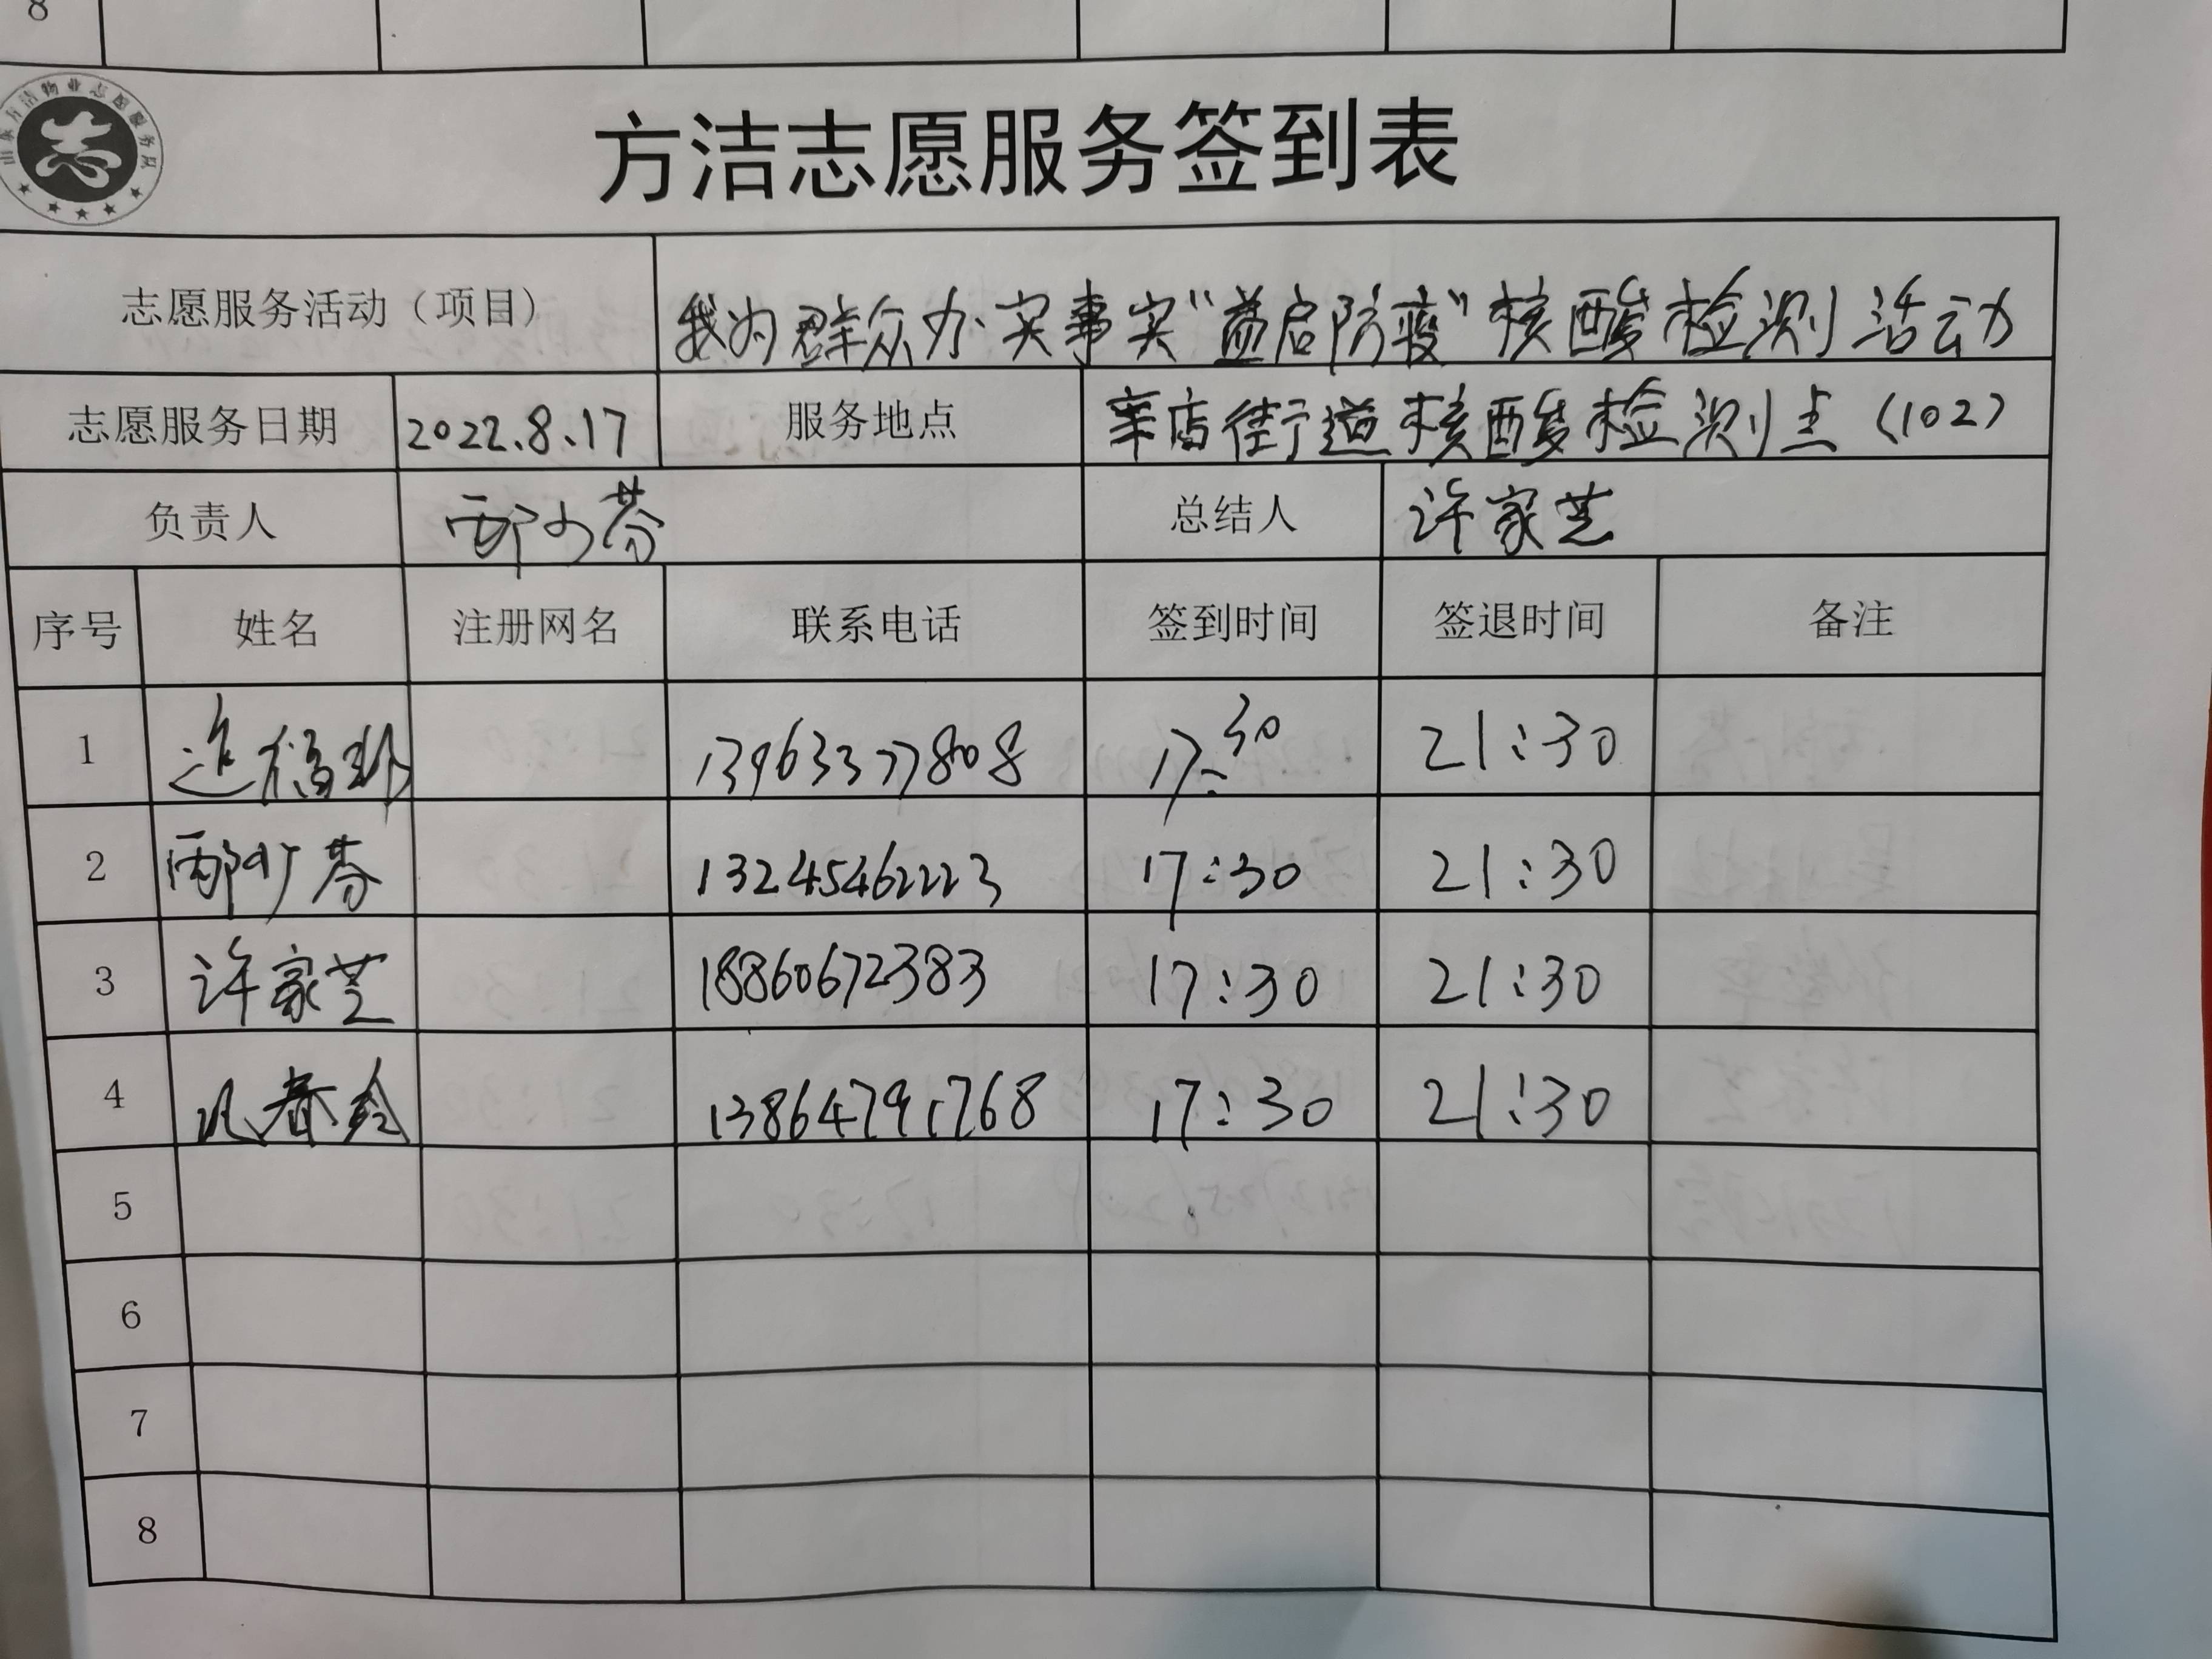 8
山东方洁物业志愿服务队
志
方洁志愿服务签到表
志愿服务活动（项目） 我为群众办实事实“益启防疫”核酸检测活动
志愿服务日期 2022.8.17 服务地点 辛店街道核酸检测点（102）
负责人 邴少芬 总结人 许家芝
序号 姓名 注册网名 联系电话 签到时间 签退时间 备注
1 13963377808 17:30 21:30
2 邴少芬 13245462223 17:30 21:30
3 许家芝 18860672383 17:30 21:30
4 13864791768 17:30 21:30
5
6
7
8